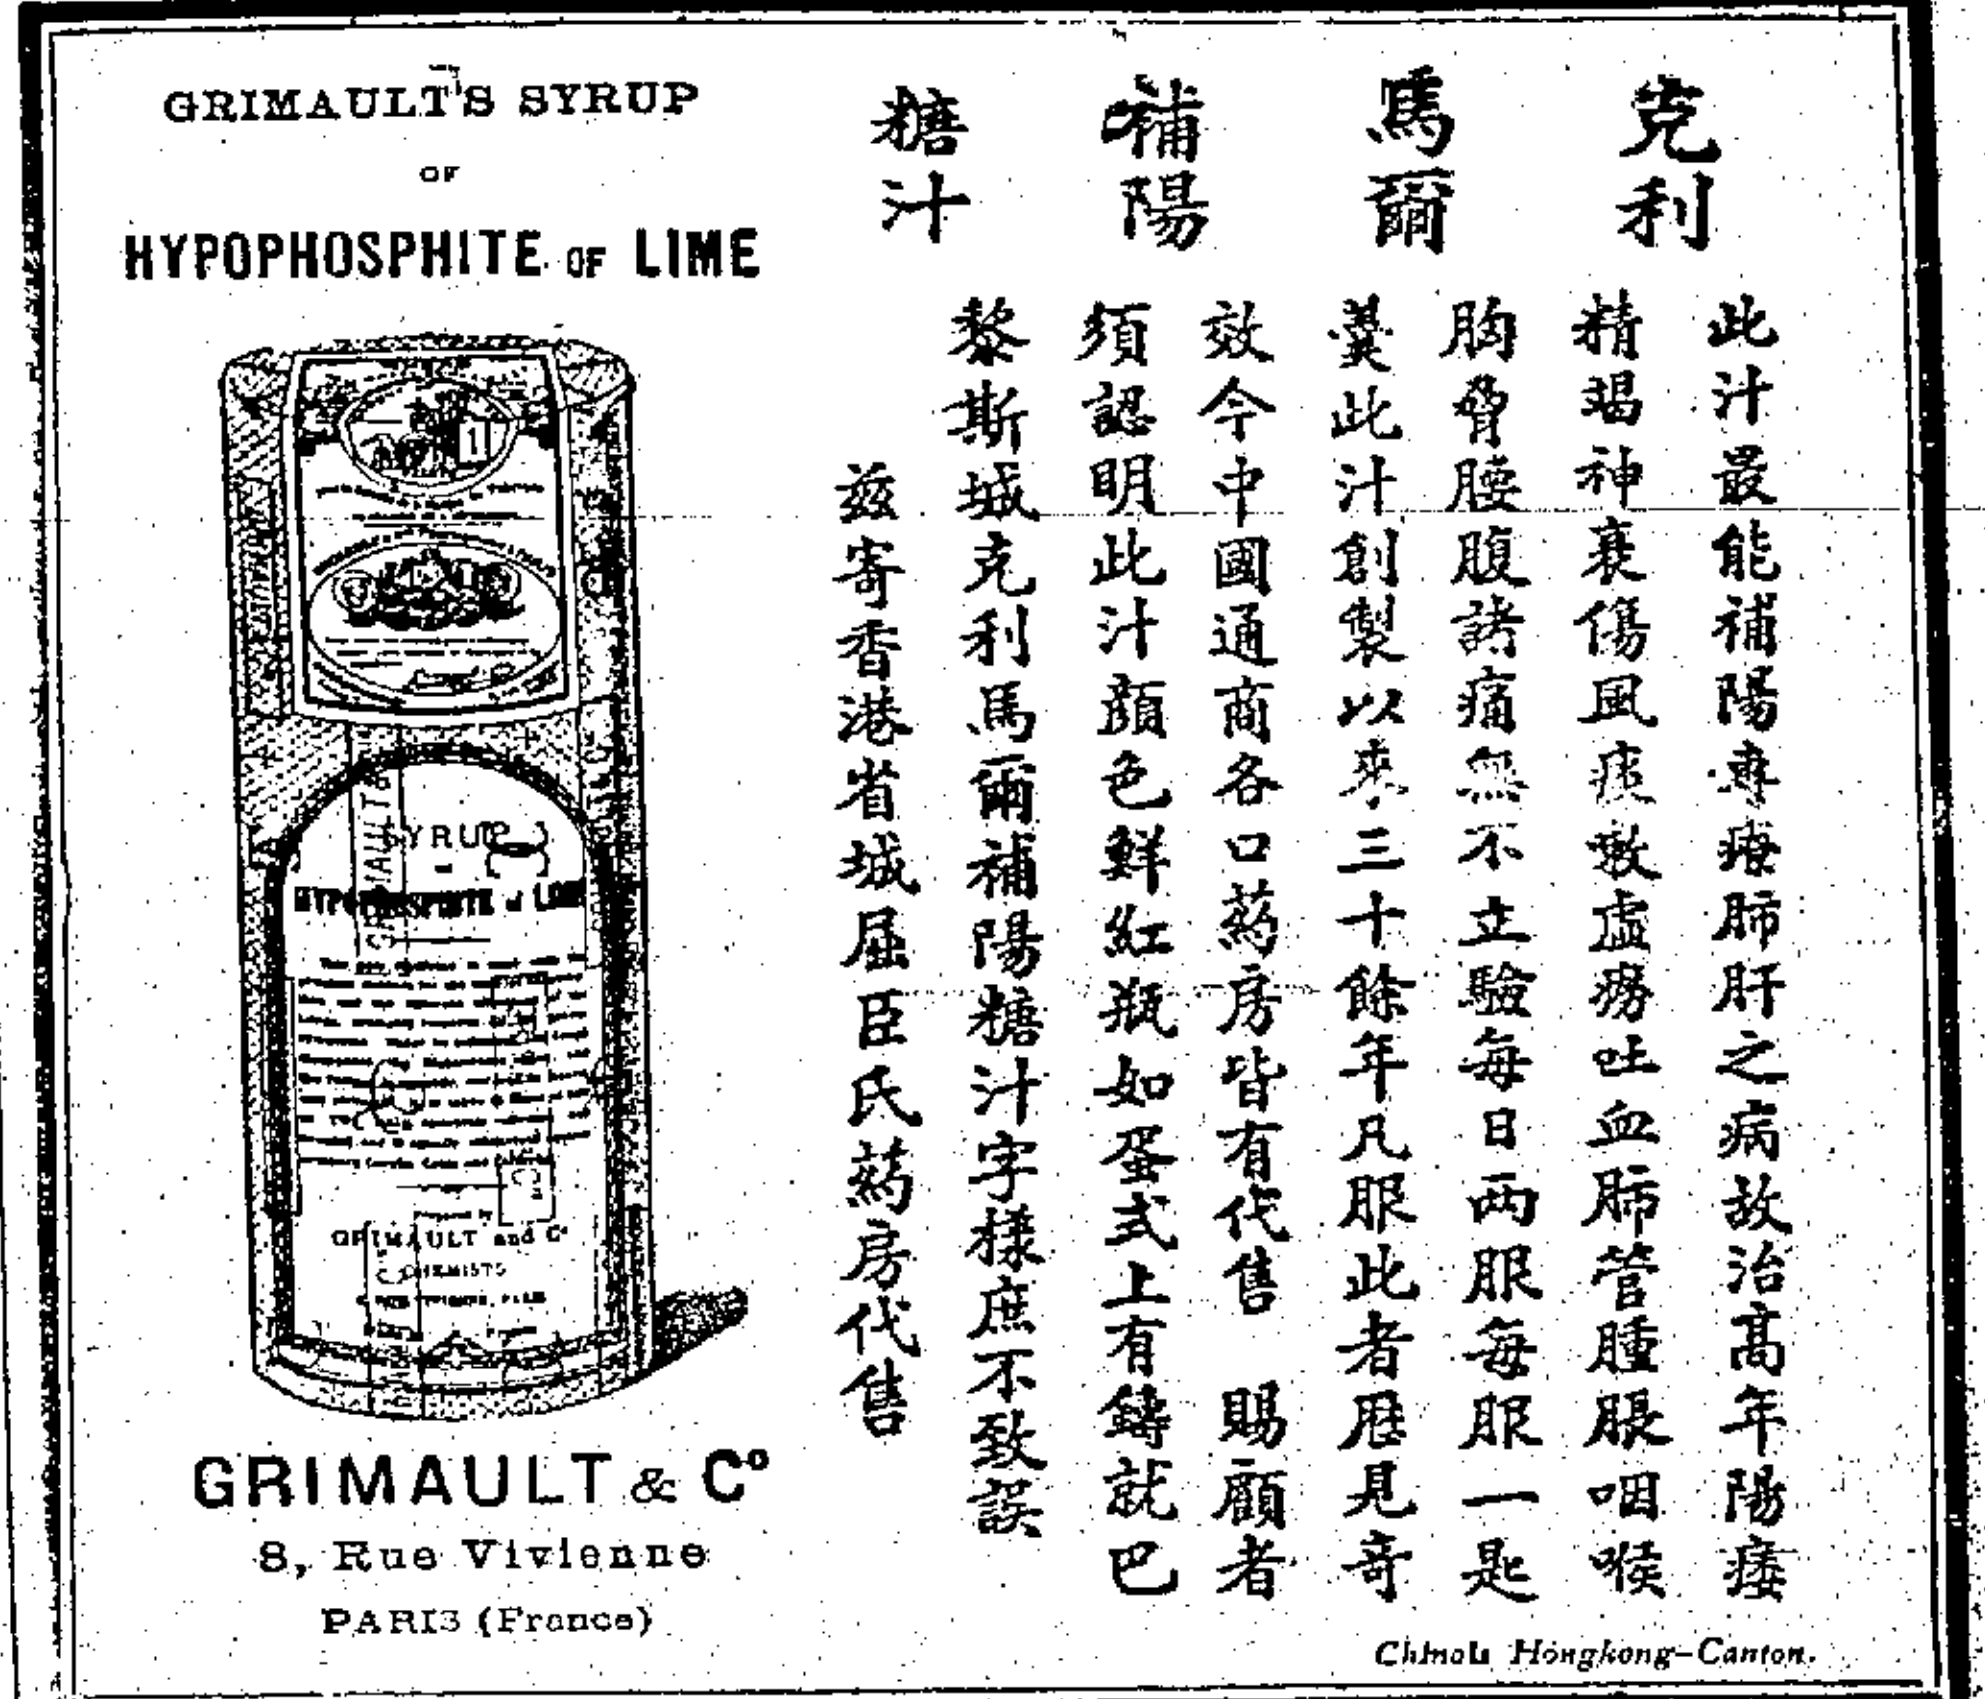 GRIMAULT'S SYRUP
OF
HYPOPHOSPHITE OF LIME
SYRUP
HYPOPHOSPHITE of LIME
GRIMAULT and Cº
CHEMISTS
GRIMAULT & Cº
8, Rue Vivienne
PARIS (France)
克利
馬爾
補陽
糖汁
此汁最能補陽專療肺肝之病故治高年陽痿
精竭神衰傷風痰嗽虛癆吐血肺管腫脹咽喉
胸脅腰腹諸痛無不立驗每日兩服每服一匙
羹此汁創製以來三十餘年凡服此者歷見奇
效今中國通商各口葯房皆有代售 賜顧者
須認明此汁顏色鮮紅瓶如蛋式上有鑄就巴
黎斯城克利馬爾補陽糖汁字樣庶不致誤
茲寄香港省城屈臣氏葯房代售
Chinois Hongkong-Canton.